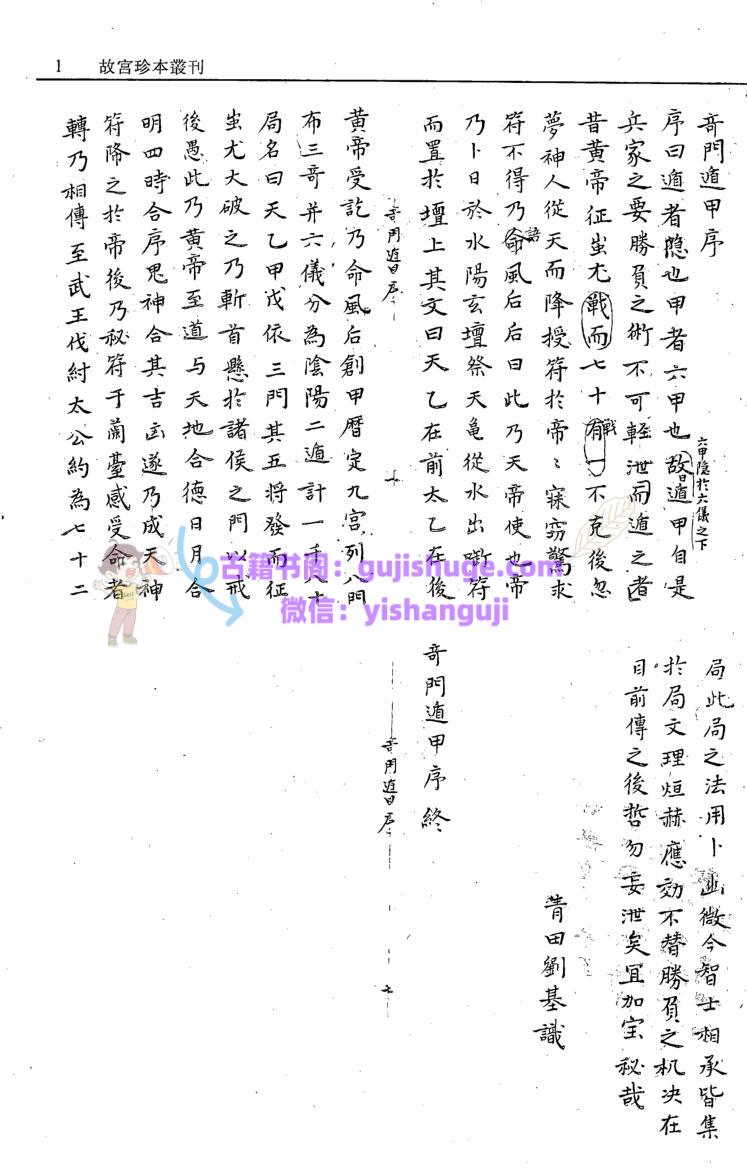 1 故宮珍本叢刊
奇門遁甲序
序曰遁者隐也甲者六甲也故遁甲自是
六甲隐於六儀之下
曰
兵家之要勝負之術不可輕泄而遁之者
昔黃帝征蚩尤戰而七十有一不克後忽
戰
夢神人從天而降授符於帝〻寐窃驚求
符不得乃命風后后曰此乃天帝使也帝
語
乃卜日於水陽玄壇祭天龟從水出啣符
而置於壇上其文曰天乙在前太乙在後
奇門遁甲序
黃帝受訖乃命風后創甲曆定九宮列八門
布三奇并六儀分為陰陽二遁計一千八十
局名曰天乙甲戊依三門其五将發而征
蚩尤大破之乃斬首懸於諸侯之門以戒
後愚此乃黃帝至道与天地合德日月合
明四時合序鬼神合其吉凶遂乃成天神
符降之於帝後乃秘符于蘭臺感受命者
轉乃相傳至武王伐紂太公約為七十二
局此局之法用卜幽微今智士相承皆集
於局文理烜赫應効不替勝負之机决在
目前傳之後哲勿妄泄矣宜加宝秘哉
青田劉基識
奇門遁甲序終
奇門遁甲序
古籍书阁：gujishuge.com
微信：yishanguji